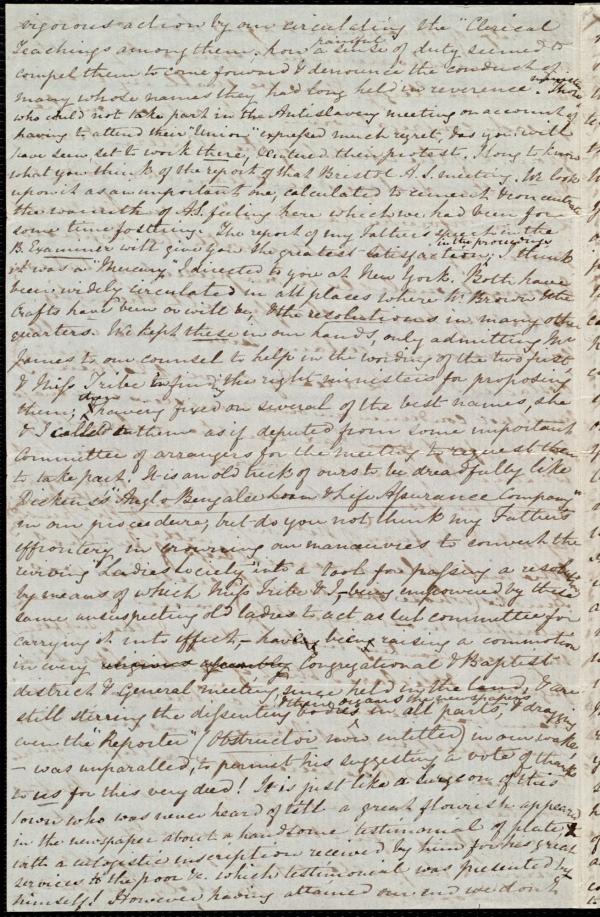 vigorous action by our circulating the "Clerical
Teachings among them, how a painful sense of duty seemed to
compel them to come forward & denounce the conduct of
many whose names they had long held in reverence. Those
who could not take part in the Antislavery meeting on account of
having to attend their "Union" expressed much regret, & as you will
have seen, set to work there, & entered their protest. I long to know
what you think of the report of that Bristol A. S. meeting. We look
upon it as an important one, calculated to cement & concentrate
the warmth of A.S. feeling here which we had been for
some time fostering. The report of my Father's speech in the
B. Examiner will give you the greatest satisfaction, in the proceedings I think
it was a "Mercury" I directed to you at New York. Both have
been widely circulated in all places where W. Brown & the
Crafts have been or will be, & the resolutions in many other
quarters. We kept these in our hands, only admitting Mr
James to our counsel to help in the wording of the two first,
& Miss Tribe in finding the right ministers for proposing
them; & having fixed on several of the best names, she
& I called on them as if deputed from some important
Committee of arrangers for the meeting to request them
to take part. It is an old trick of ours to be dreadfully like
Dickens's Anglo Bengalee Loan & Life Assurance Company"
in our procedure; but do you not think my Father's
effrontery in crowning our manoeuvres to convert the
reviving "Ladies society" into a tool for passing a resolution
by means of which Miss Tribe & I, being empowered by these
same unsuspecting old ladies to act as sub committee for
carrying it into effect, - having been raising a commotion
in every Congregational & Baptist
district & General meeting since held in the land, & are
still stirring the dissenting bodies & their organs the newspapers in all parts, & dragging
even the "Reporter" (Obstructor now entitled) in our wake,
- was unparalled, to permit his suggesting a vote of thanks
to us for this very deed! It is just like a surgeon of this
town who was never heard of till a great flourish appeared
in the newspaper about a handsome testimonial of plate,
with a eulogistic inscription received by him for his great
services to the poor &c. which testimonial was presented by
himself! However having attained our end we don't